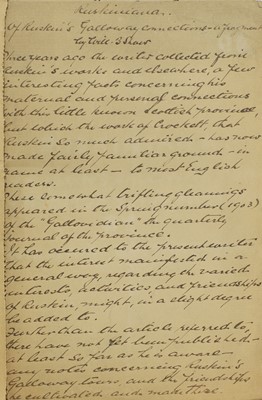 Ruskiniana.
Of Ruskin's Galloway connections
by Will Shaw
Three years ago the writer collected from
Ruskin's works and elsewhere, a few
interesting facts concerning his
maternal and personal connections
with this little known Scottish province,
but which the work of Crockett, that
Ruskin so much admired - has now
made fairly familiar ground - in
name at least - to most English
readers.
These somewhat trifling gleanings
appeared in the Spring number (1903)
of the "Gallovidian" the quarterly
Journal of the province.
It has occurred to the present writer
that the interest manifested in a
general way, regarding the varied
interests, activities, and friendships
of Ruskin, might, in a slight degree
be added to.
Further than the article referred to,
there have not yet been published -
at least so far as he is aware -
any notes concerning Ruskin's
Galloway tours, and the friendships
he cultivated and made there.